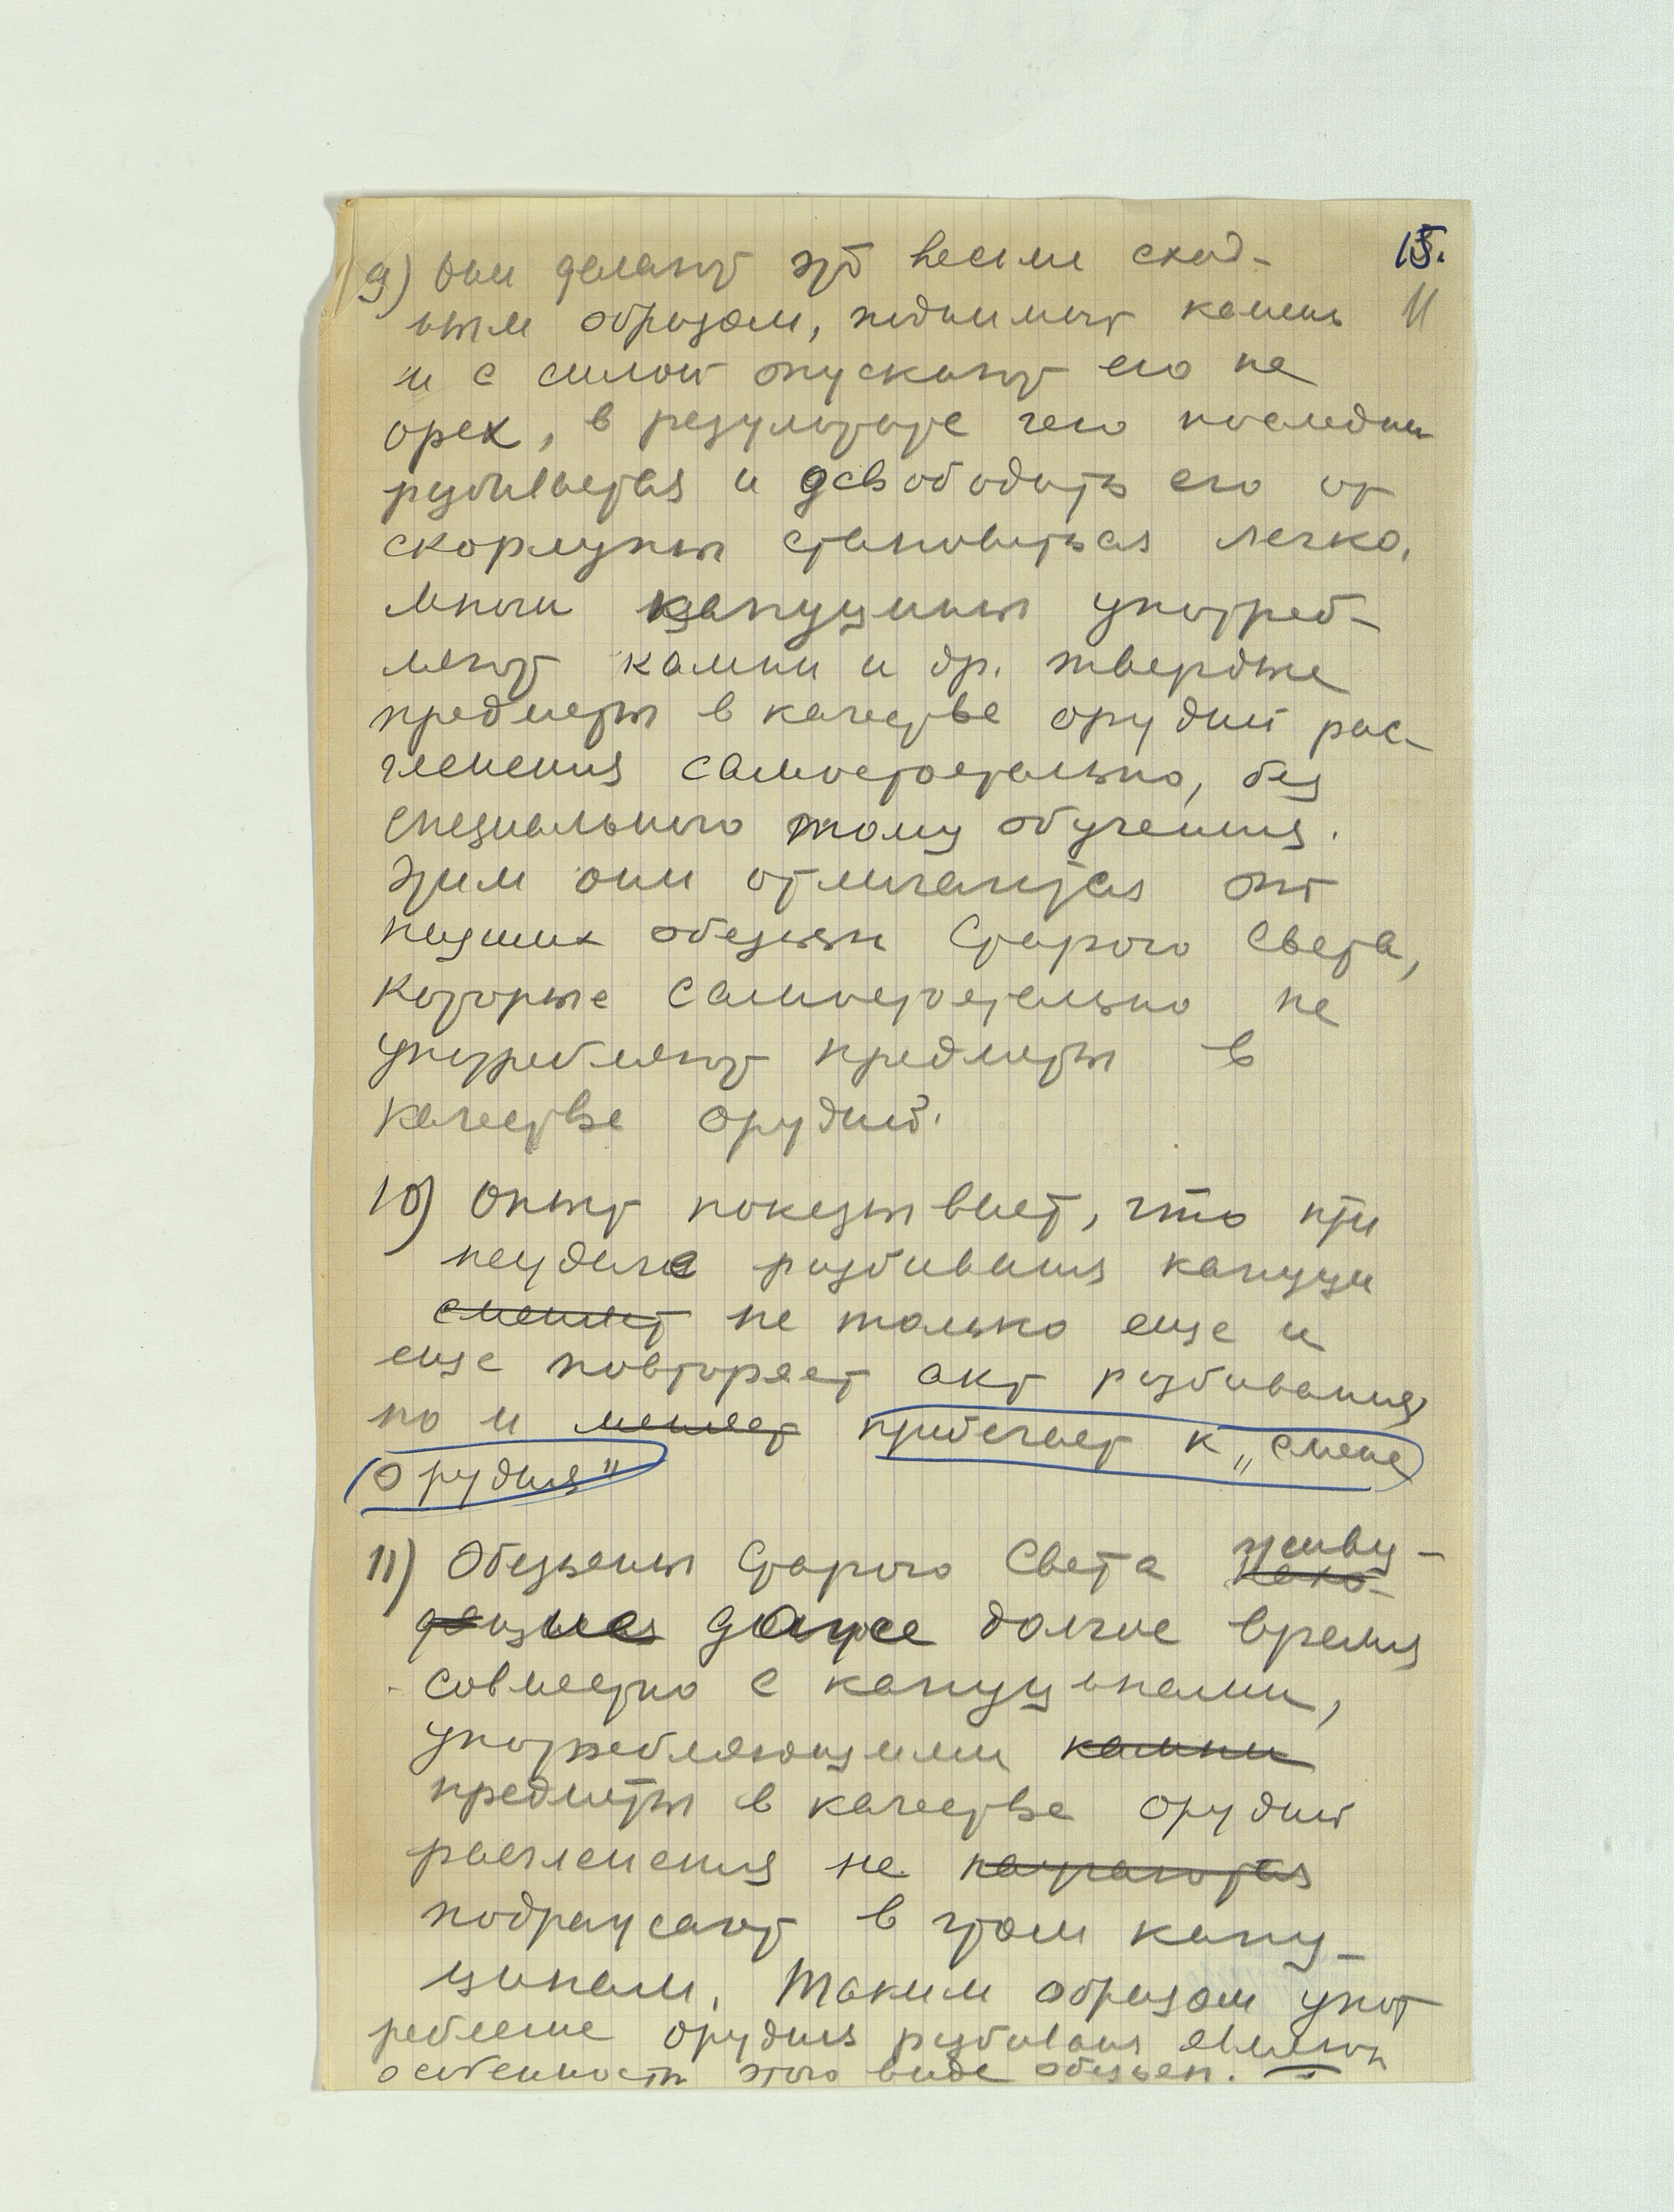 15.
11
9) Они делают это весьма сход-
ным образом, поднимают камень
и с силой опускают его на
орех, в результате чего последний
разбивается и освободить его от
скорлупы становиться легко.
Многи капуцины употреб-
ляют камни и др. твердые
предметы в качестве орудий рас-
членения самостоятельно, без
специального тому обучения.
Этим они отличаются от
низших обезьян Старого Света,
которые самостоятельно не
употребляют предметы в
качестве орудий.
10) Опыт показывает, что при
неудаче разбивания капуцин
сменяет не только еще и
еще повторяет акт разбивания,
но и меняет прибегает к „смене
орудия"
11) Обезьяны Старого Света живу-
щие даже долгое время
совместно с капуцинами,
употребляющими камни
предметы в качестве орудий
расчленения не
подражают в этом капу-
цинам. Таким образом упот
ребление орудия разбивания
особенность этого вида обезьян.